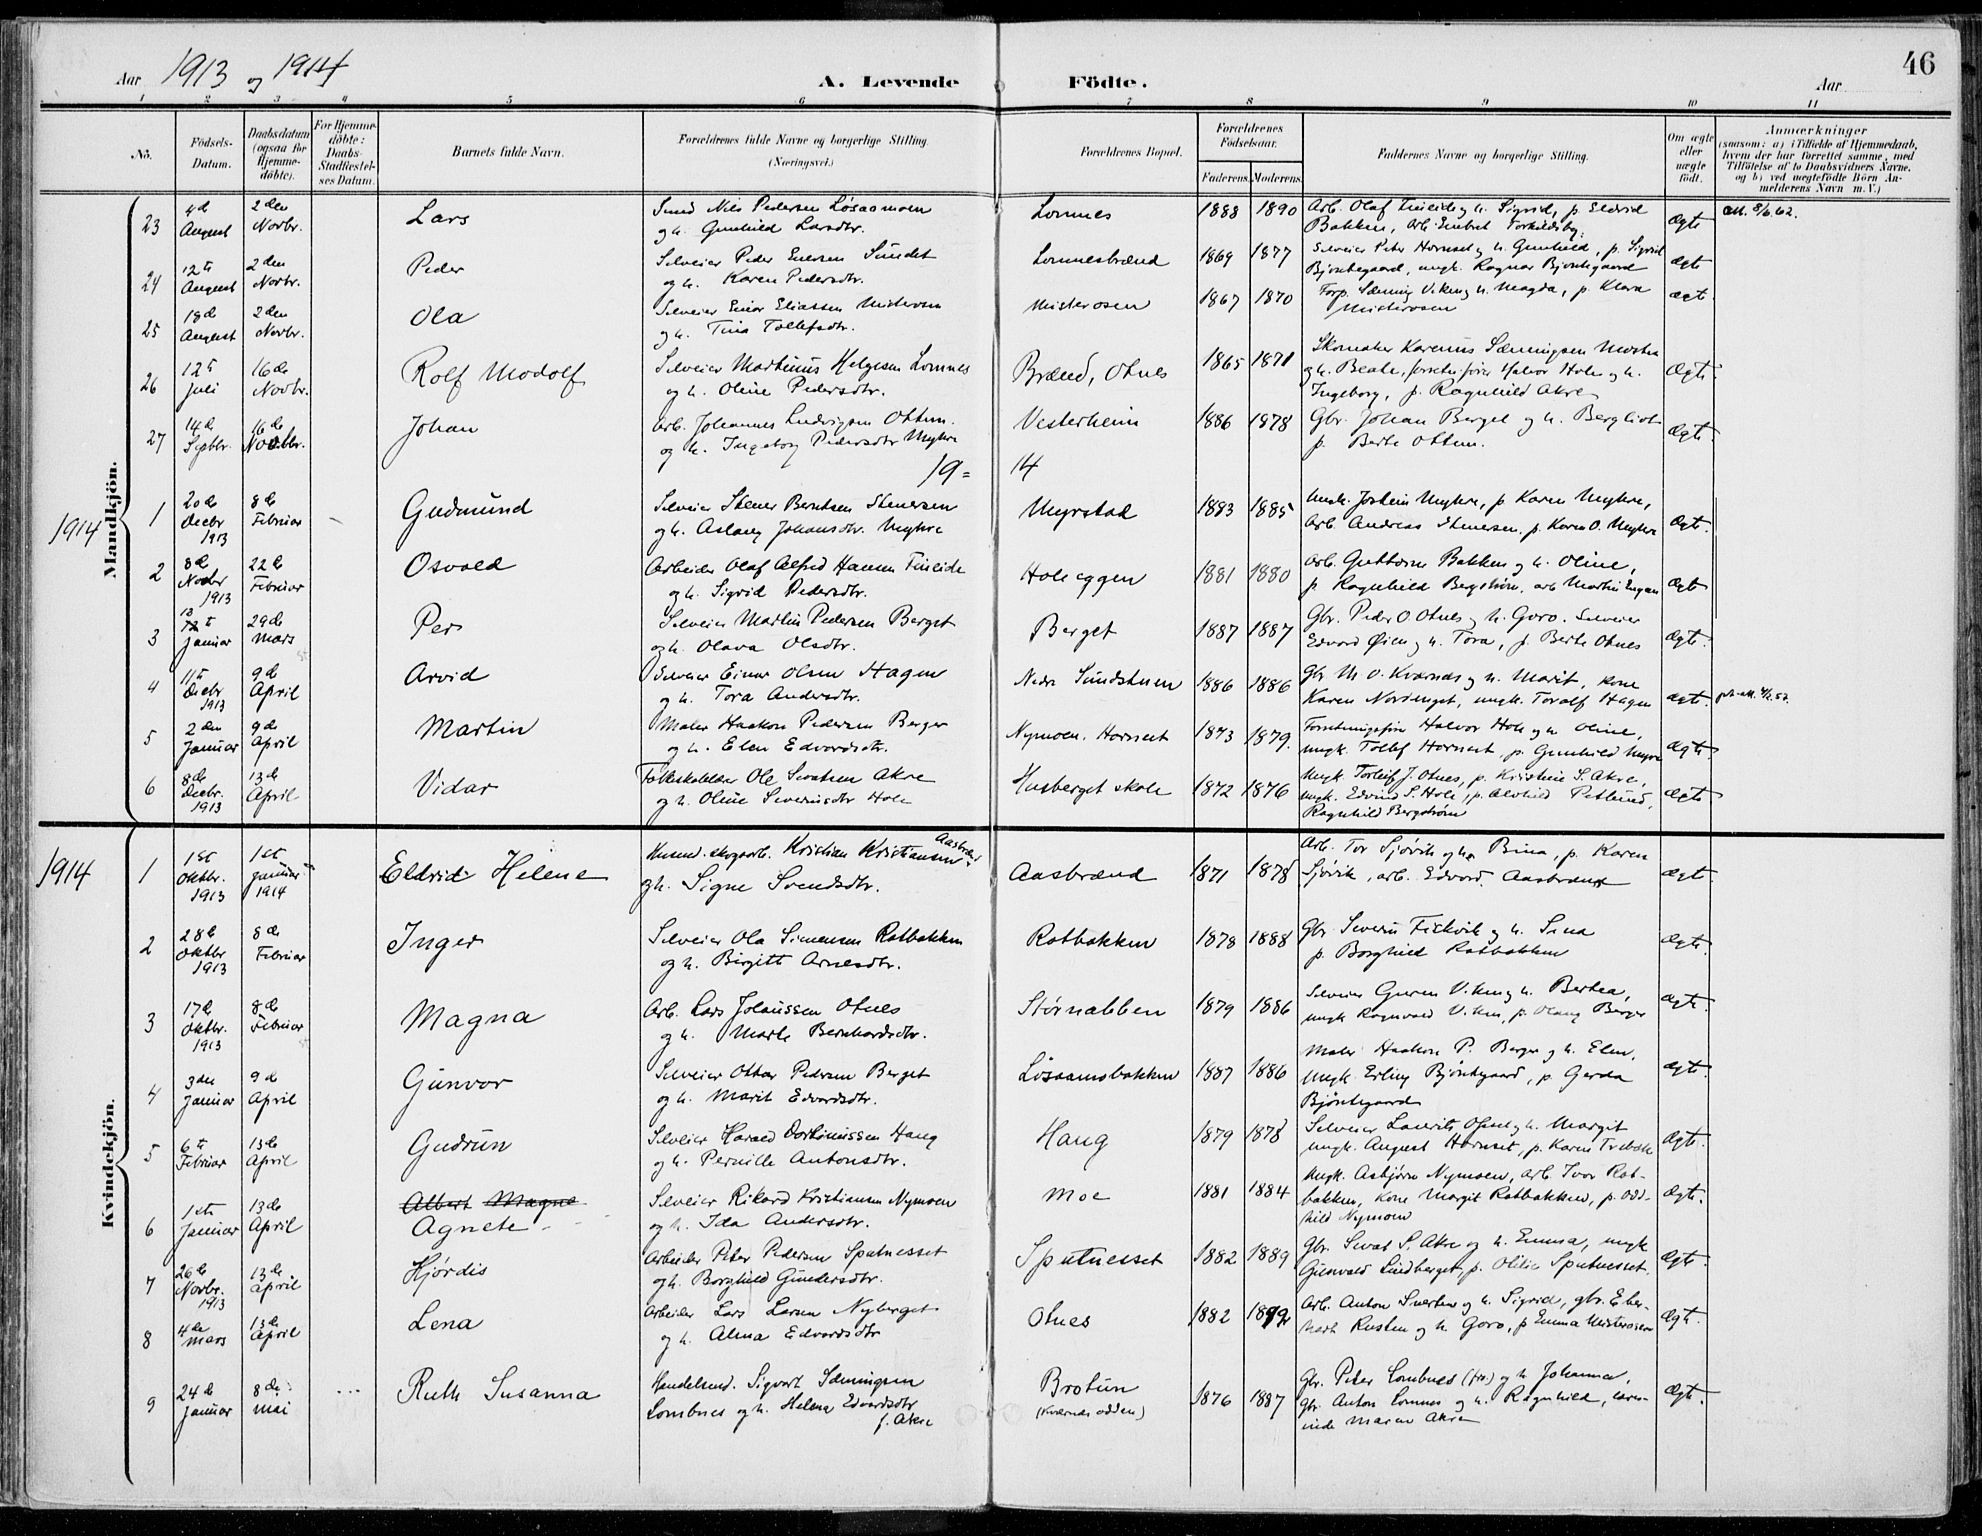 Aar 1913 og 1914 A. Levende Födte. Aar 46
1 2 3 4 5 6 7 8 9 10 11
No. Födsels-Datum. Daabsdatum (ogsaa for Hjemme-döbte). For Hjemme-döbte: Daabs-Stadfæstel-ses Datum. Barnets fulde Navn. Forældrenes fulde Navne og borgerlige Stilling (Næringsvei.) Forældrenes Bopæl. Forældrenes Födselsaar. Faderens. Moderens. Faddernes Navne og borgerlige Stilling. Om ægte eller uægte födt. Anmærkninger (saasom: a) i Tilfælde af Hjemmedaab, hvem der har forrettet samme, med Tilföielse af to Daabsvidners Navne. og b) ved uægtefödte Börn An-melderens Navn m. V.)
Mandkjön.
23 4d August 2den Novbr. Lars Smed Nils Pedersen Løsaamoen og h. Gunhild Larsdtr. Lomnes 1888 1890 Arb. Olaf Finlid og h. Sigrid, p. Eldrid Bakken, Arb. Embret Torkildsby. Ægte att. 8/6.62.
24 12te August 2den Novbr. Peder Selveier Peder Enersen Sundet og h. Karen Pedersdtr. Lomnesbrænd 1869 1877 Selveier Peter Hornset og h. Gunhild, p. Sigrid Bjontegaard, ungk. Ragnar Bjontegaard ægte
25 18d August 2den Novbr. Ola Selveier Einar Eliassen Misterosen og h. Tina Tollefsdtr. Misterosen 1867 1870 Forp. Sæming Viken og h. Magda, p. Klara Misterosen ægt.
26 12te Juli 16de Novbr. Rolf Modolf Selveier Martinus Helgesen Lomnes og h. Oline Pedersdtr. Brænd, Otnes 1865 1871 Skomaker Karenus Sæmingsen Mostu og h. Beate, Halvor Hole og h. Ingeborg, p. Ragnhild Akre Ægte.
27 14d Septbr. 16de Novbr. Johan Arb. Johannes Ludvigsen Ottem. og h. Ingeborg Pedersdtr Myhre Vesterheim 1886 1878 Gbr. Johan Berget og h. Bergliot p. Berte Ottem. Ægte
19= 14
1914 1 20de Decbr 1913 8de Februar Gudmund Selveier Stener Berntsen Stenersen og h. Aslaug Johansdtr. Myhre Myrstad 1883 1885 Ungk. Jostein Myhre, p Karen Myhre, Arb. Andreas Stenersen, p. Karen O. Myhre Ægt.
2 8de Novbr 1913 22de Februar Osvald Arbeider Olaf Alfred Hansen Finlide og h. Sigrid Pedersdtr. Holeeggen 1881 1880 Arb. Guttorm Bakken og h. Oline, p. Ragnhild Bergstrøm. arb Martin Engen Ægt
3 13 te Januar 29de Mars Per Selveier Martin Pedersen Berget og h. Olava Olsdtr. Berget 1887 1887 Gbr. Peder O Otnes og h. Goro. Selveier Edvard Øien og h. Tora, p. Berte Otnes Ægt.
4 11te Decbr 1913 9de April Arvid Selveier Einar Olsen Hagen og h. Tora Andersdtr. Nedre Sundstuen 1886 1886 Gbr M. O. Kværnes og h. Marit, kone Karen Nordenget, ungk. Toralf Hagen ægt.
5 2den Januar 9de April Martin Maler Haakon Pedersen Berger og h. Elen Edvardsdtr. Nymoen. Hornset 1873 1879. Forretningsfører Halvor Hole og h Oline, ungk. Tollef Hornset, p. Gunhild Myhre Ægt.
6 8de Decbr. 1913 13de April Vidar Folkeskolelær Ole Sivertsen Akre og h. Oline Severinsdtr Hole Husberget skole 1872 1876 Ungk. Torleif J. Otnes, p. Kristine S. Akre, ungk. Edvin S. Hole, p. Alvhild Petlund, Ragnhild Bergstrøm Ægte
Kvindekjön.
1914 1 1ste Oktbr. 1913 1ste Januar 1914 Eldrid Helene Husmd. skogarb. Kristian Kristiansen Aasbrænd gh. Signe Svendsdtr. Aasbrænd 1871 1878 Arb. Tor Sjøvik og h. Bina, p. Karen Sjøvik, arb. Edvard. Aasbrænd ægt.
2 28de Oktbr 1913 8de Februar Inger Selveier Ola Simensen Ratbakken og h. Birgitt Arnesdtr. Ratbakken 1878 1888 Gbr Severin Fiskvik og h. Lina p. Borghild Ratbakken Ægt.
3 17de Oktbr. 1913 8de Februar Magna Arb. Lars Johanssen Otnes og h. Marte Bernhardsdtr. Størnabben 1879 1886 Selveier Guren Viken og h. Bertea, ungk Ragnvald Viken, p. Olaug Berger Ægt.
4 3die Januar 9de April Gunvor Selveier Ottar Pedersen Berget og h. Marit Edvardsdtr. Løsaamobakken 1887 1886 Maler Haakon P. Berger og h. Elen, ungk. Erling Bjøntegaard, p. Gerda Bjøntegaard Ægt.
5 6te Februar 13de April Gudrun Selveier Harald Haug og h. Pernille Antonsdtr. Haug 1879 1878 Selveier Laurits Opset og h. Margit ungk. August Hornset, p. Karen Ægt.
6 1ste Januar 13de April Albert Magne Agnete Selveier Rikard Kristiansen Nymoen og h. Ida Andersdtr. Moe 1881 1884 Ungk. Asbjørn Nymoen, arb. Ivar Rat-bakken, kone Margit Ratbakken, p. Odd-hild Nymoen Ægt.
7 26de Novbr. 1913 13de April Hjørdis Arbeider Peter Pedersen Sputnesset og h. Borghild Gundersdtr. Sputnesset 1882 1889 Gbr. Sivert S. Akre og h. Emma, ungk Gunvald Lindberget, p. Otilie Sputnesset. Ægt.
8 4de Mars 13de April Lena Arbeider Lars Larsen Nyberget og h. Alma Edvardsdtr Otnes 1882 1892 Arb. Anton Snerten og h. Sigrid, gbr. Eber-hart Rusten og h Goro, p Emma Misterosen Ægt.
9 24de Januar 8de Mai Ruth Susanna Handelsmd. Sigvart Sæmingsen Lombnes og h. Helena Edvardsdtr f. Akre Brotun (Kværnesodden) 1876 1887 Gbr. Peter Lombnes og h Johanna, gbr. Anton Lomnes og h. Ragnhild, lærer-inde Maren Akre Ægt.